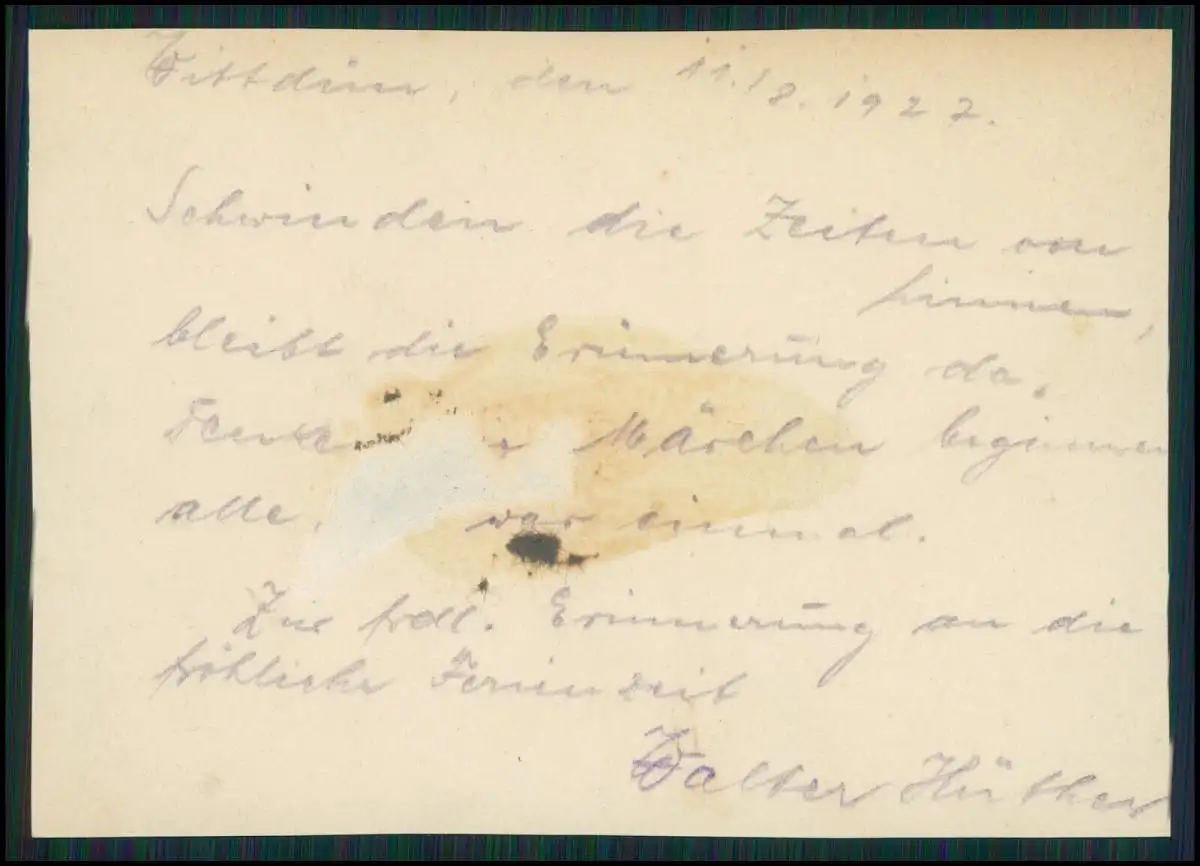 Wittdün, den 11./8. 1927.
Schwinden die Zeiten von
hinnen,
bleibt die Erinnerung da.
Märchen beginnen
alle. war einmal.
Zur frdl. Erinnerung an die
fröhliche Ferienzeit
Walter Hüther